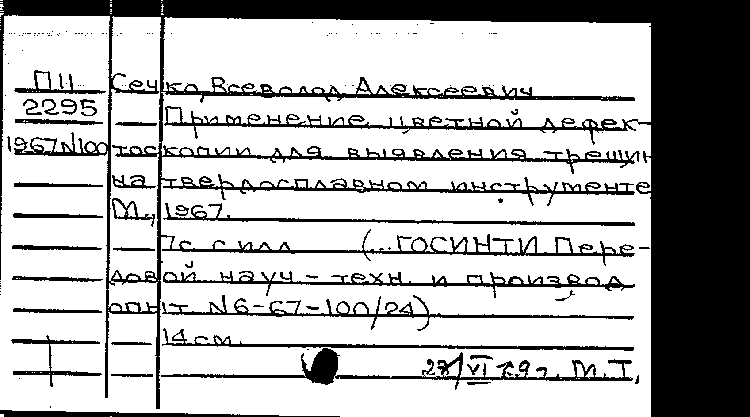 П11 Сечко, Всеволод Алексеевич
2295 Применение цветной дефек-
1967N100 тоскопии для выявления трещин
на твердосплавном инструменте
М., 1967.
7с с илл (...ГОСИНТИ. Пере-
довой науч-техн. и производ.
опыт N6-67-100/24)
14см.
М.Т.